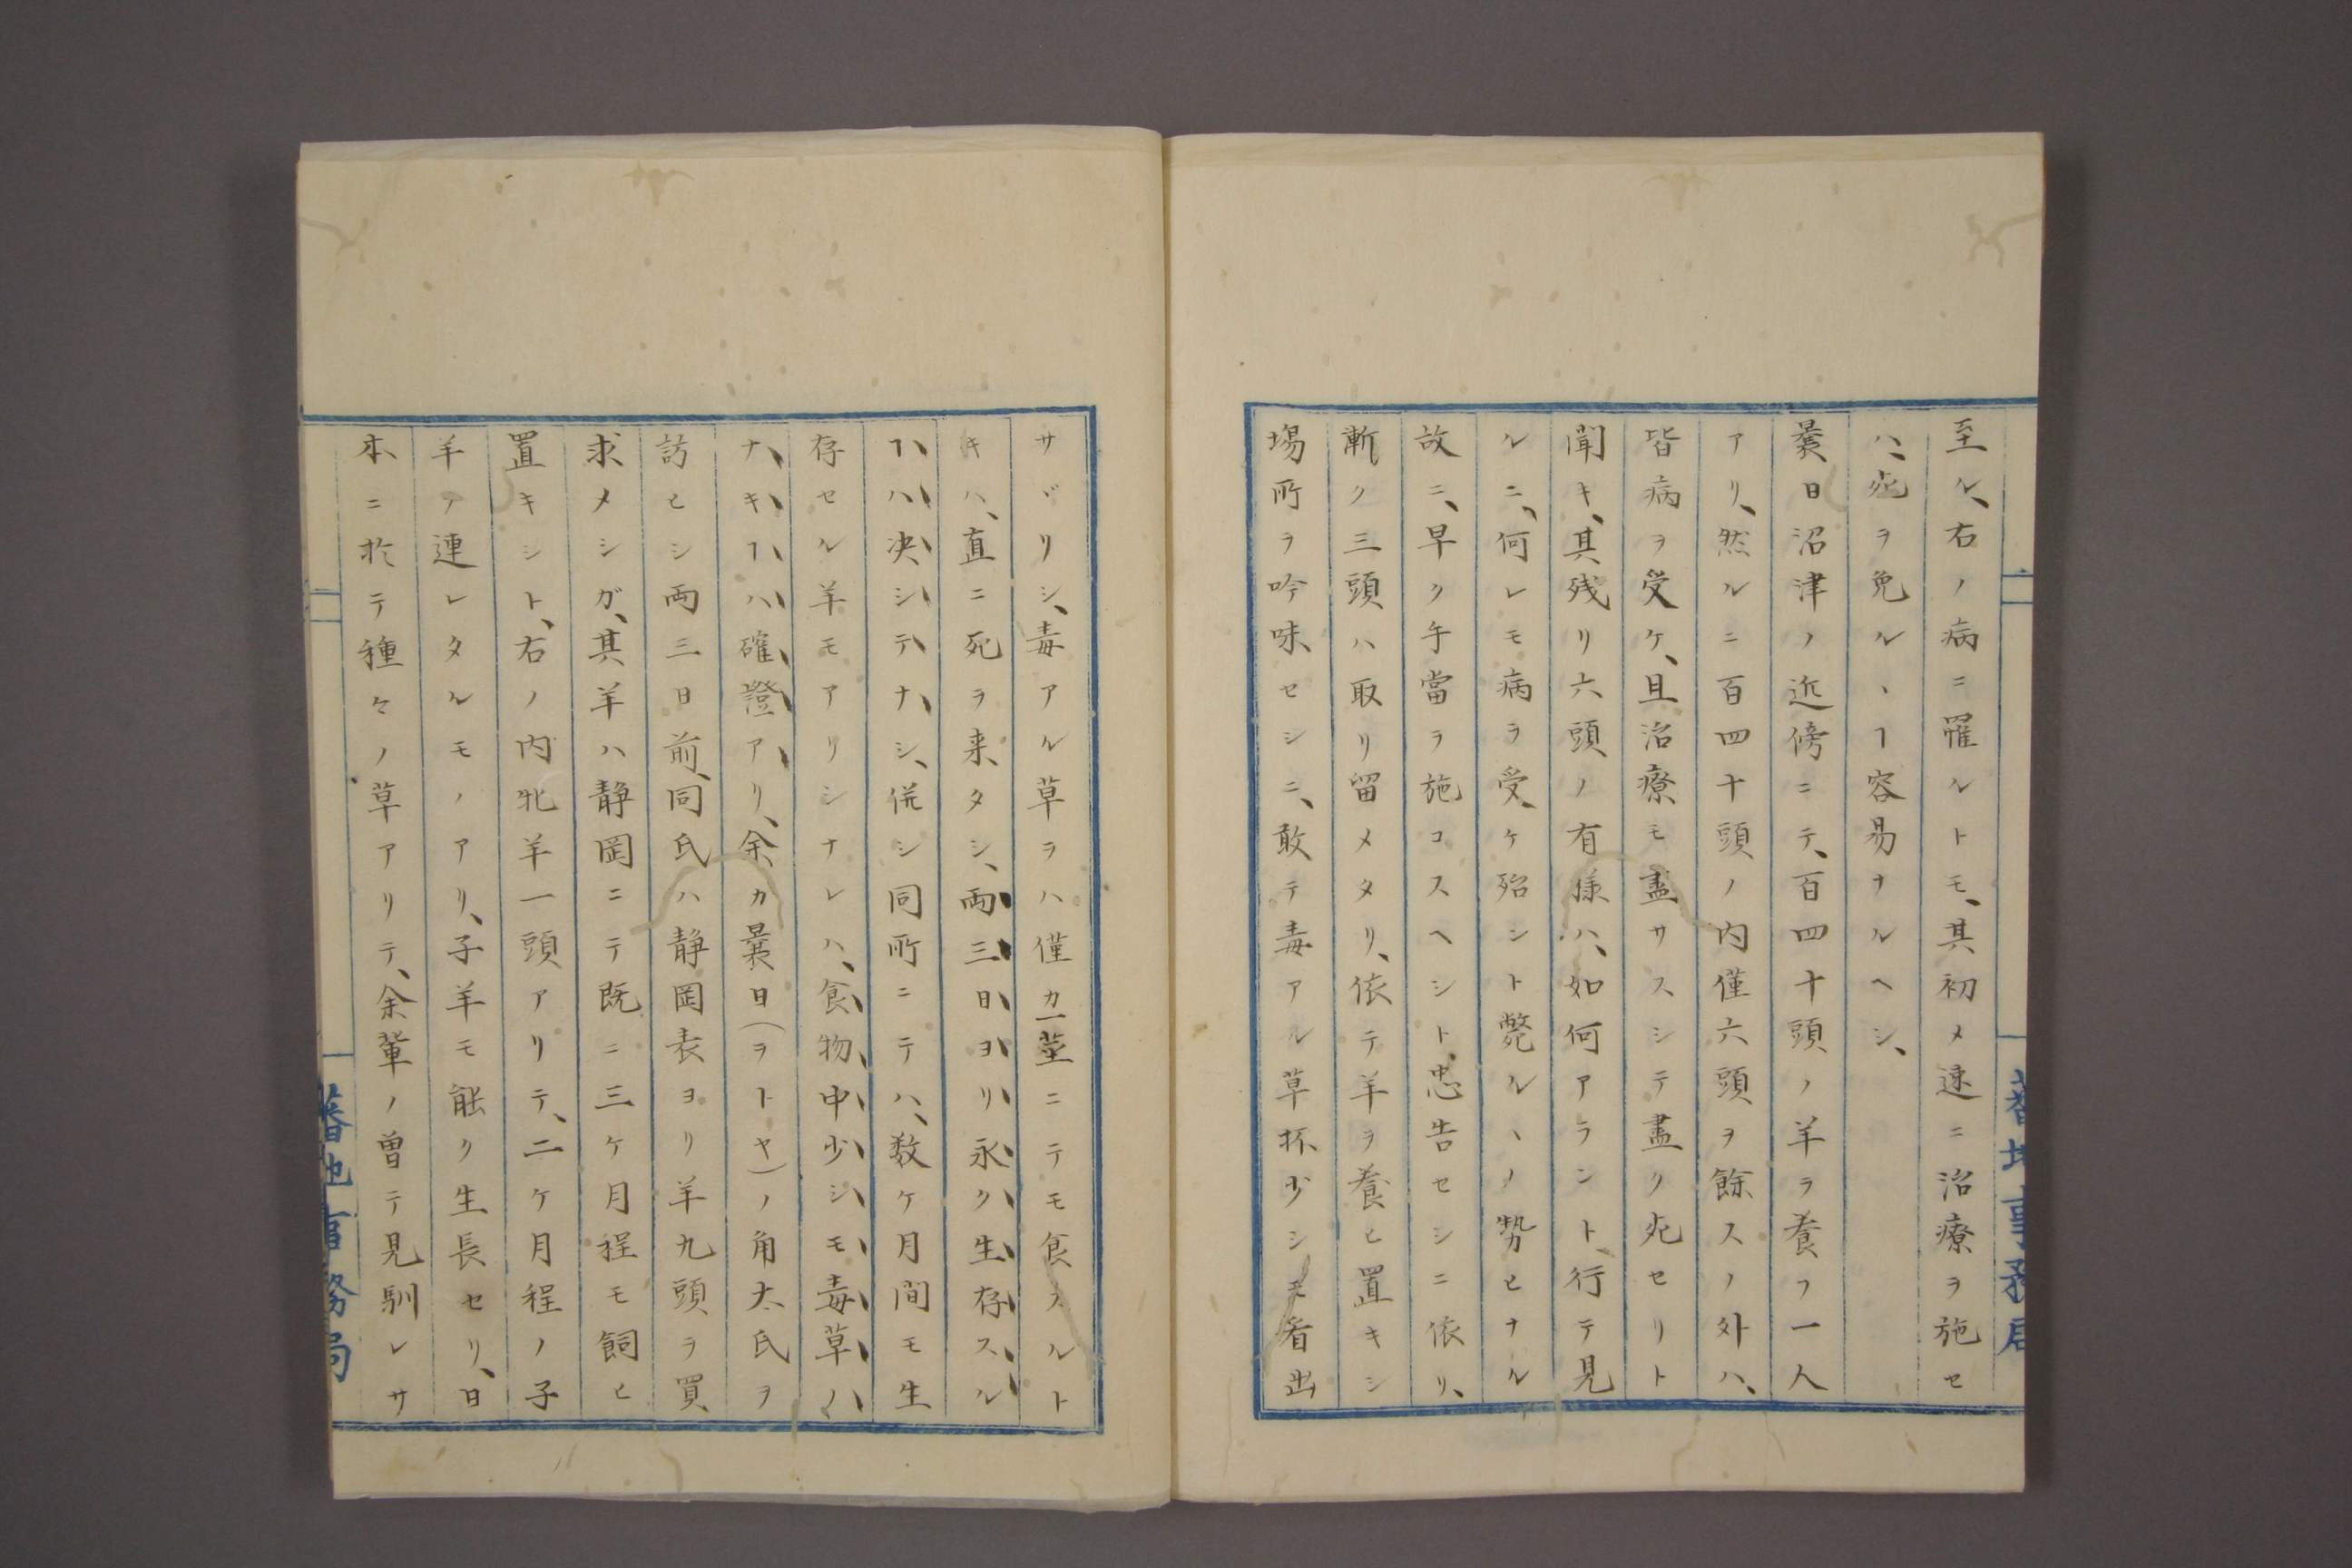 至ル、右ノ病ニ罹ルトモ、其初メ速ニ治療ヲ施セ
ハ、死ヲ免ルヽヿ容易ナルヘシ、
曩日沼津ノ近傍ニテ、百四十頭ノ羊ヲ養フ一人
アリ、然ルニ百四十頭ノ内僅六頭ヲ餘スノ外ハ、
皆病ヲ受ケ、且治療モ盡サスシテ盡ク死セリト
聞キ、其残リ六頭ノ有様ハ、如何アラント、行テ見
ルニ、何レモ病ヲ受ケ殆シト斃ルヽノ勢ヒナル
故ニ、早ク手當ヲ施コスヘシト、忠告セシニ依リ、
漸ク三頭ハ取リ留メタリ、依テ羊ヲ養ヒ置キシ
場所ヲ吟味セシニ、敢テ毒アル草抔少シモ看出
サヾリシ、毒アル草ヲハ僅カ一莖ニテモ食フルト
キハ、直ニ死ヲ来タシ、両三日ヨリ永ク生存スル
ヿハ決シテナシ、併シ同所ニテハ、数ケ月間モ生
存セル羊モアリシナレハ、食物中少シモ毒草ノ
ナキヿハ確證アリ、余カ曩日(ヲトヤ)ノ角太氏ヲ
訪ヒシ両三日前、同氏ハ静岡表ヨリ羊九頭ヲ買
求メシガ、其羊ハ静岡ニテ既ニ三ケ月程モ飼ヒ
置キシト、右ノ内牝羊一頭アリテ、二ケ月程ノ子
羊ヲ連レタルモノアリ、子羊モ能ク生長セリ、日
本ニ於テ種々ノ草アリテ、余輩ノ曽テ見馴レサ
蕃地事務局
蕃地事務局